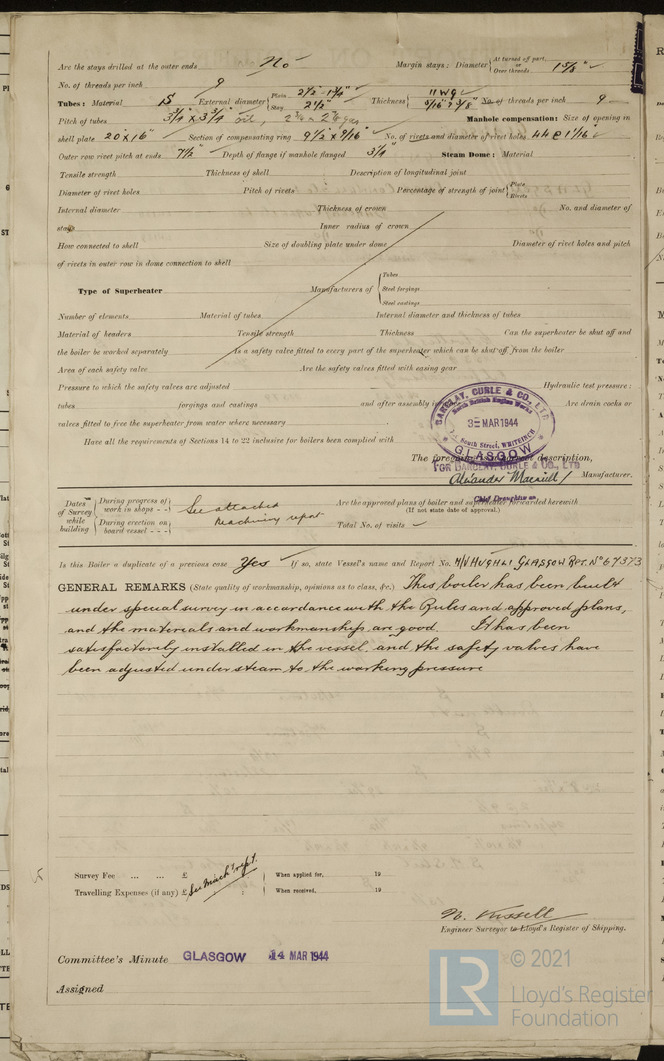 Are the stays drilled at the outer ends No Margin stays: Diameter { At turned off part, or Over threads 1 5/8" ✓
No. of threads per inch 9
Tubes: Material IS External diameter { Plain 2 1/2" Stay 2 1/2" Thickness { 11 WG 5/16" & 3/8" No. of threads per inch 9
Pitch of tubes 3 3/4" x 3 3/4" oil, gas Manhole compensation: Size of opening in
shell plate 20" x 16" Section of compensating ring 9 1/2" x 9/16" ✓ No. of rivets and diameter of rivet holes 44 @ 1 1/16" ✓
Outer row rivet pitch at ends 7 1/2" Depth of flange if manhole flanged 3 1/4" Steam Dome: Material
Tensile strength Thickness of shell Description of longitudinal joint
Diameter of rivet holes Pitch of rivets Percentage of strength of joint { Plate Rivets
Internal diameter Thickness of crown No. and diameter of
stays Inner radius of crown
How connected to shell Size of doubling plate under dome Diameter of rivet holes and pitch
of rivets in outer row in dome connection to shell
Type of Superheater Manufacturers of { Tubes Steel forgings Steel castings
Number of elements Material of tubes Internal diameter and thickness of tubes
Material of headers Tensile strength Thickness Can the superheater be shut off and
the boiler be worked separately Is a safety valve fitted to every part of the superheater which can be shut off from the boiler
Area of each safety valve Are the safety valves fitted with easing gear
Pressure to which the safety valves are adjusted Hydraulic test pressure:
tubes forgings and castings and after assembly in Are drain cocks or
valves fitted to free the superheater from water where necessary
Have all the requirements of Sections 14 to 22 inclusive for boilers been complied with
BARCLAY, CURLE & CO., LTD
North British Engine Works
3 - MAR 1944
South Street, WHITEINCH
GLASGOW
The foregoing is a correct description,
FOR BARCLAY, CURLE & CO., LTD
Alexander Macneill Manufacturer.
Chief Draughtsman
Dates of Survey while building { During progress of work in shops - - During erection on board vessel - - - } See attached Machinery report
Are the approved plans of boiler and superheater forwarded herewith
(If not state date of approval.)
Total No. of visits ✓
Is this Boiler a duplicate of a previous case Yes If so, state Vessel's name and Report No. M/V HUGHLI. GLASGOW RPT. No 67373
GENERAL REMARKS (State quality of workmanship, opinions as to class, &c.) This boiler has been built
under special survey in accordance with the Rules and approved plans,
and the materials and workmanship are good. It has been
satisfactorily installed in the vessel, and the safety valves have
been adjusted under steam to the working pressure
Survey Fee ... ... £ : : When applied for, 19
Travelling Expenses (if any) £ See Mach'y rept. When received, 19
N. Russell
Engineer Surveyor to Lloyd's Register of Shipping.
Committee's Minute GLASGOW 14 MAR 1944
Assigned
LR © 2021
Lloyd's Register
Foundation